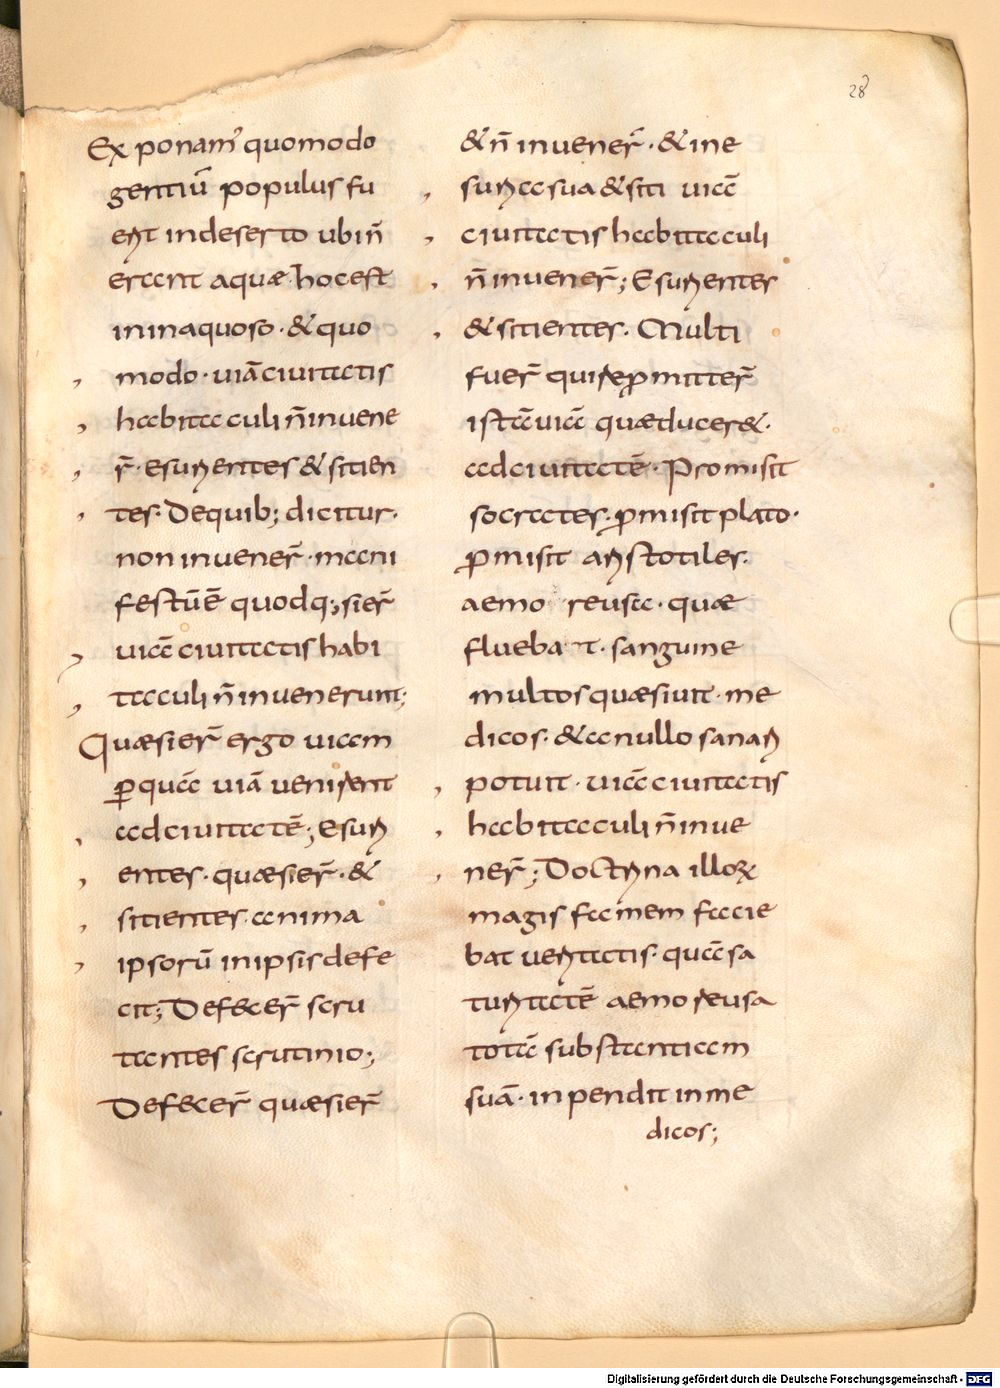 28
Ex ponam̄ quomodo
gentiū populus fu
erit in deserto ubi n̄
erant aquæ hoc est
in inaquoso · & quo
modo · uiā ciuitatis
habitaculi n̄ inuene
r̄ · esurientes & sitien
tes · De quib; dicitur ·
non inuener̄ · mani
festū ē quod q;sier̄
uiā ciuitatis habi
taculi n̄ inuenerunt;
Quæsier̄ ergo uiam
ꝑ quā uiā uenirent
ad ciuitatē; Esuri
entes · quæsier̄ · &
sitientes anima
ipsorū in ipsis defe
cit; Defecer̄ scru
tantes scrutinio;
Def&cer̄ quæsier̄
& n̄ inuener̄ · & in e
suria sua & siti uiā
ciuitatis habitaculi
n̄ inuener̄; Esurienter
& sitienter · Multi
fuer̄ qui re ꝓmitter̄
istā uiā quæ ducer& ·
ad ciuitatē · Promisit
socrates · ꝓmisit plato ·
ꝓmisit aristotiles ·
aemo reusa · quæ
flueba t · sanguine
multos quæsiuit · me
dicos · & a nullo sanari
potuit · uiā ciuitatis
habitaculi n̄ inue
ner̄; Doctrina illoꝝ
magis famem facie
bat ueritatis · quā sa
turitatē aemoreusa
totā substantiam
suā · inpendit in me
dicos;
Digitalisierung gefördert durch die Deutsche Forschungsgemeinschaft - DFG